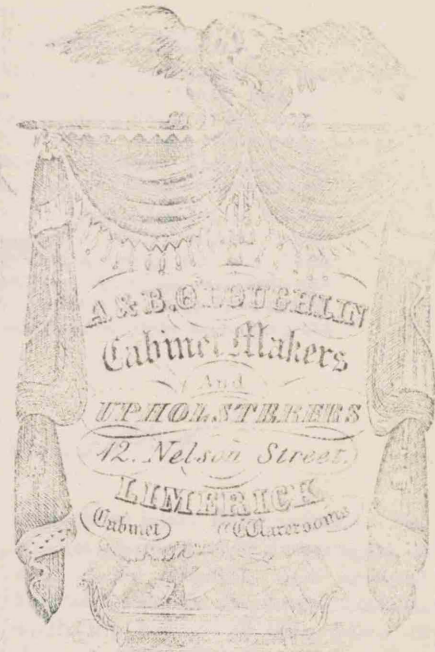 A & B. O'LOUGHLIN
Cabinet Makers
And
UPHOLSTERERS
42. Nelson Street.
LIMERICK
Cabinet Warerooms